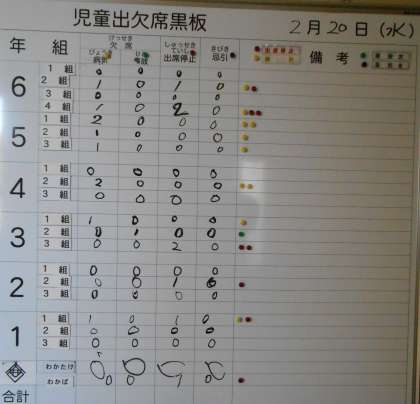 児童出欠席黒板 2月20日(水)
年 組 けっせき 欠席 びょうけつ 病欠 事故 しゅっせきていし 出席停止 きびき 忌引 出席停止 備考
6 1組 0 0 0 0
2組 1 0 1 0
3組 0 0 0 0
4組 1 0 2 0
5 1組 2 0 0 0
2組 1 0 0 0
3組 1 0 0 0
4 1組 0 0 0 0
2組 2 0 0 0
3組 0 0 0 0
3 1組 1 0 0 0
2組 0 1 0 0
3組 0 0 2 0
2 1組 0 0 0 0
2組 0 0 1 0
3組 0 0 0 0
1 1組 1 0 1 0
2組 0 0 0 0
3組 0 0 0 0
わかたけ 0 0
わかば 0 0 1 0
合計